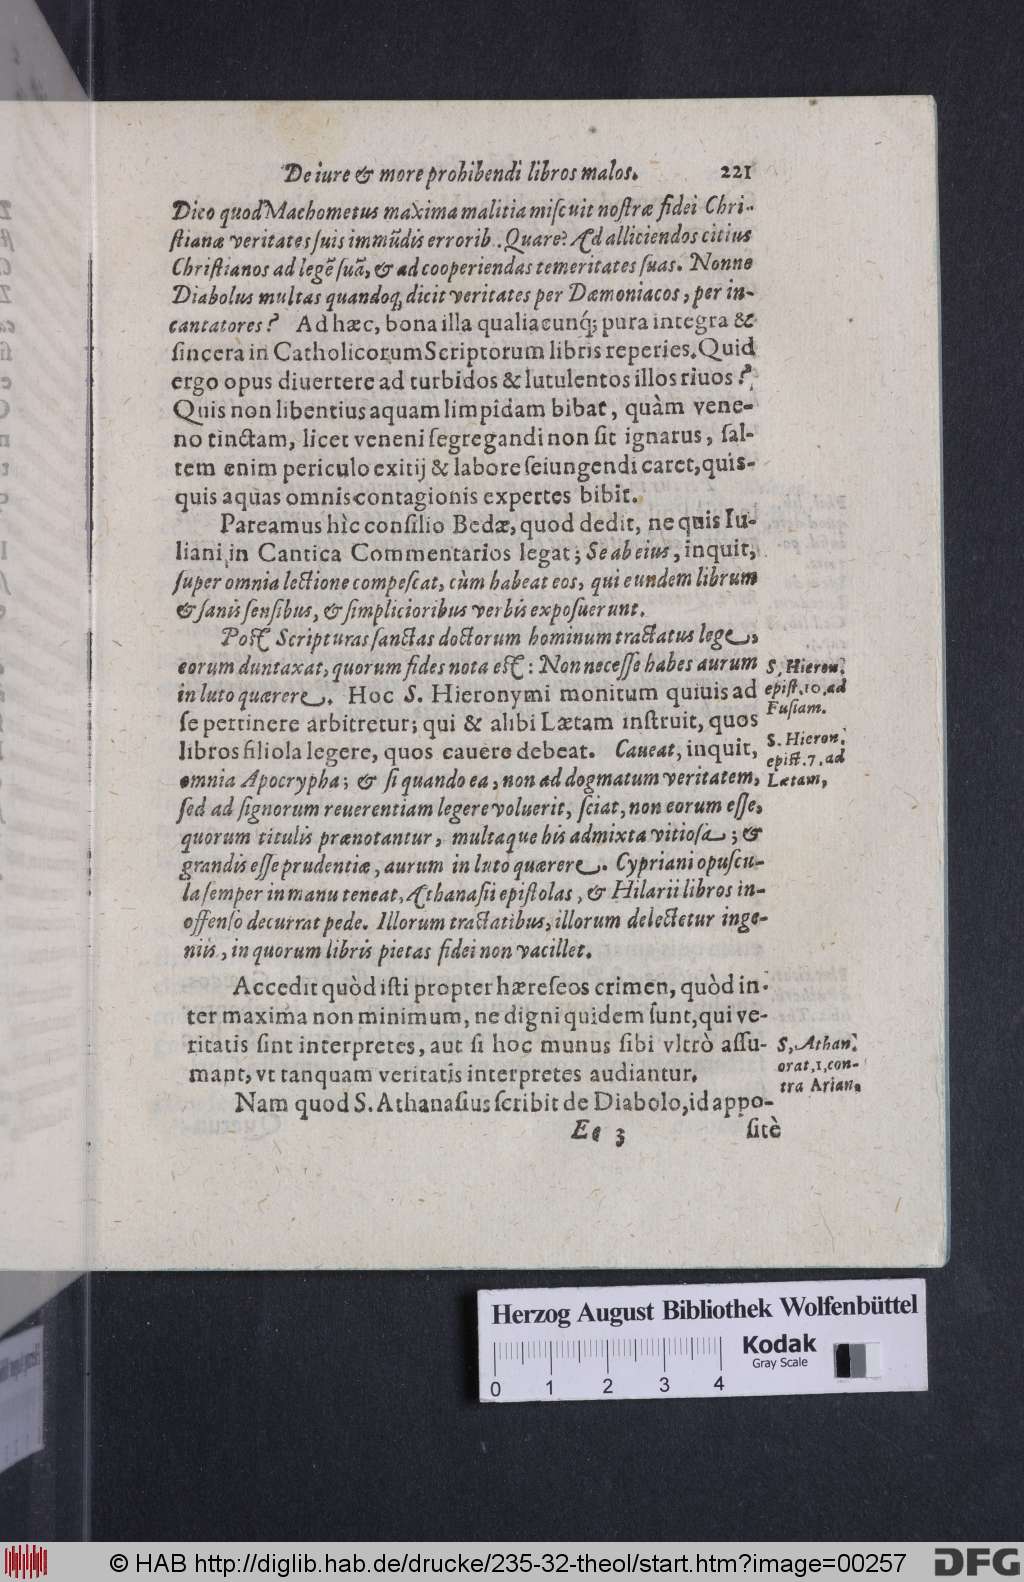 De iure & more prohibendi libros malos. 221
Dico quod Machometus maxima malitia miscuit nostræ fidei Chri-
stianæ veritates suis immūdis errorib. Quare? Ad alliciendos citius
Christianos ad legē suā, & ad cooperiendas temeritates suas. Nonne
Diabolus multas quandoq; dicit veritates per Dæmoniacos, per in-
cantatores? Ad hæc, bona illa qualiacunq́; pura integra &
sincera in Catholicorum Scriptorum libris reperies. Quid
ergo opus diuertere ad turbidos & lutulentos illos riuos?
Quis non libentius aquam limpidam bibat, quàm vene-
no tinctam, licet veneni segregandi non sit ignarus, sal-
tem enim periculo exitij & labore seiungendi caret, quis-
quis aquas omnis contagionis expertes bibit.
Pareamus hìc consilio Bedæ, quod dedit, ne quis Iu-
liani in Cantica Commentarios legat; Se ab eius, inquit,
super omnia lectione compescat, cùm habeat eos, qui eundem librum
& sanis sensibus, & simplicioribus verbis exposuerunt.
Post Scripturas sanctas doctorum hominum tractatus lege,
eorum duntaxat, quorum fides nota est: Non necesse habes aurum
in luto quærere. Hoc S. Hieronymi monitum quiuis ad
se pertinere arbitretur; qui & alibi Lætam instruit, quos
libros filiola legere, quos cauere debeat. Caueat, inquit,
omnia Apocrypha; & si quando ea, non ad dogmatum veritatem,
sed ad signorum reuerentiam legere voluerit, sciat, non eorum esse,
quorum titulis prænotantur, multaque his admixta vitiosa; &
grandis esse prudentiæ, aurum in luto quærere. Cypriani opuscu-
la semper in manu teneat, Athanasii epistolas, & Hilarii libros in-
offenso decurrat pede. Illorum tractatibus, illorum delectetur inge-
niis, in quorum libris pietas fidei non vacillet.
Accedit quòd isti propter hæreseos crimen, quòd in-
ter maxima non minimum, ne digni quidem sunt, qui ve-
ritatis sint interpretes, aut si hoc munus sibi vltrò assu-
mant, vt tanquam veritatis interpretes audiantur.
Nam quod S. Athanasius scribit de Diabolo, id appo-
Ee 3 sitè
S. Hieron.
epist. 10. ad
Fusiam.
S. Hieron.
epist. 7. ad
Lætam,
S. Athan.
orat. 1, con-
tra Arian.
Herzog August Bibliothek Wolfenbüttel
Kodak
Gray Scale
0 1 2 3 4
© HAB http://diglib.hab.de/drucke/235-32-theol/start.htm?image=00257
DFG